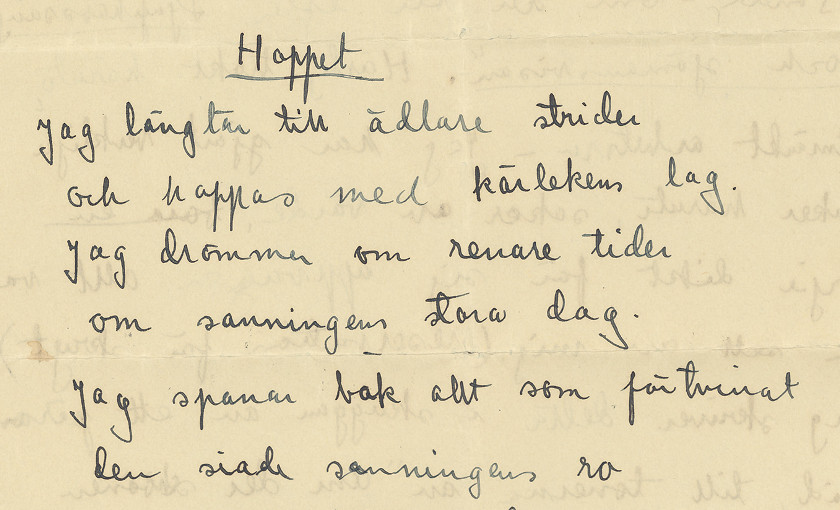 Hoppet
Jag längtar till ädlare strider
och hoppas med kärlekens lag.
Jag drömmer om renare tider
om sanningens stora dag.
Jag spanar bak allt som förtvinat
den siade sanningens ro